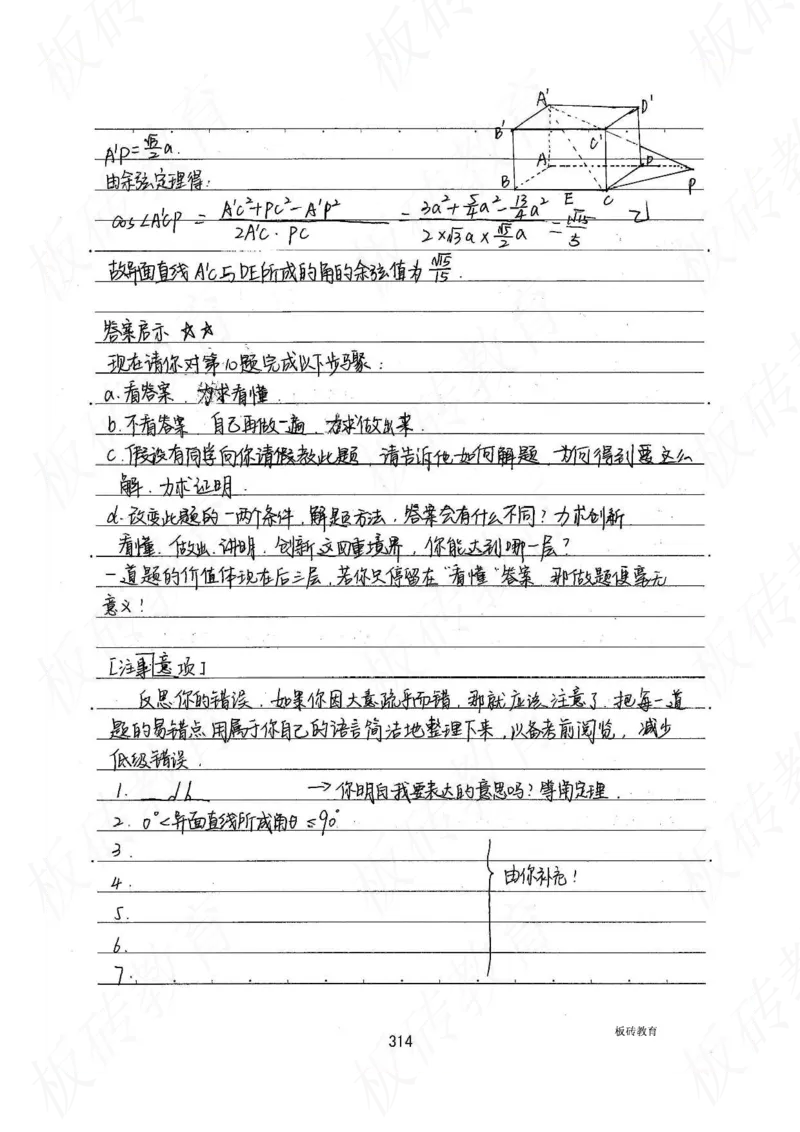 A'P=√13/2 a.
由余弦定理得:
cos∠A'CP = (A'C²+PC²-A'P²)/(2A'C·PC) = (3a²+5/4a²-13/4a²)/(2×√3a×√5/2a) = √15/15
A' D' B' C' A D B E C P
故异面直线A'C与DE所成的角的余弦值为√15/15.
答案启示 ☆☆
现在请你对第10题完成以下步骤:
a.看答案,力求看懂.
b.不看答案,自己再做一遍,力求做出来.
c.假设有同学向你请假教此题,请告诉他如何解题,为何得到要这么
解.力求证明.
d.改变此题的一两个条件,解题方法,答案会有什么不同?力求创新
看懂.做出.讲明.创新这四重境界,你能达到哪一层?
一道题的价值体现在后三层,若你只停留在"看懂"答案,那做题便毫无
意义!
[注事意项]
反思你的错误.如果你因大意疏乎而错,那就应该注意了.把每一道
题的易错点用属于你自己的语言简洁地整理下来,以备考前阅览,减少
低级错误.
1. →你明白我要表达的意思吗?等角定理.
2. 0°<异面直线所成角θ≤90°
3.
4. 由你补充!
5.
6.
7.
板砖教育
314
板砖教育